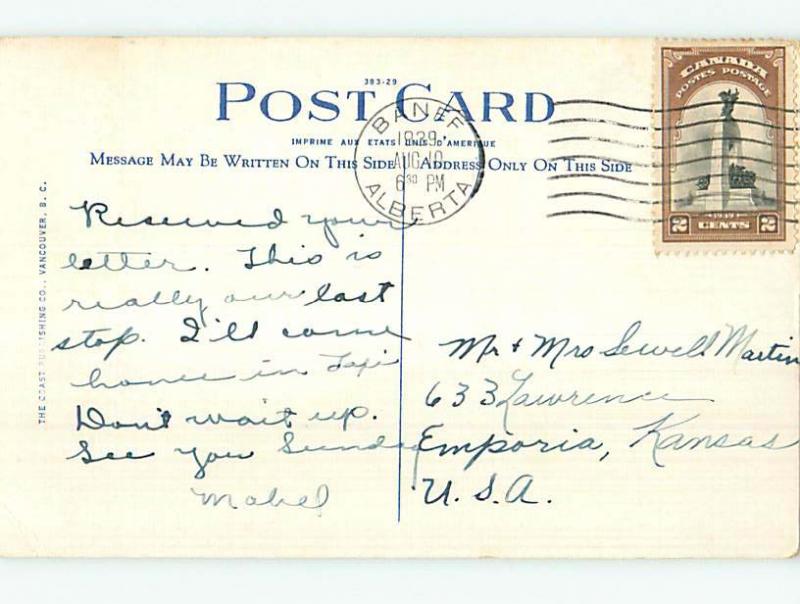 383-29
POST CARD
IMPRIME AUX ETATS UNIS D'AMERIQUE
MESSAGE MAY BE WRITTEN ON THIS SIDE ADDRESS ONLY ON THIS SIDE
BANFF
1939
AUG 10
6 30 PM
ALBERTA
CANADA
POSTES POSTAGE
2 CENTS 2
THE COAST PUBLISHING CO., VANCOUVER, B. C.
Reseved your
letter. This is
really our last
stop. I'll come
home in Taxi
Don't wait up.
See you Sunday
Mabel
Mr + Mrs Sewell Martin
633 Lawrence
Emporia, Kansas
U.S.A.